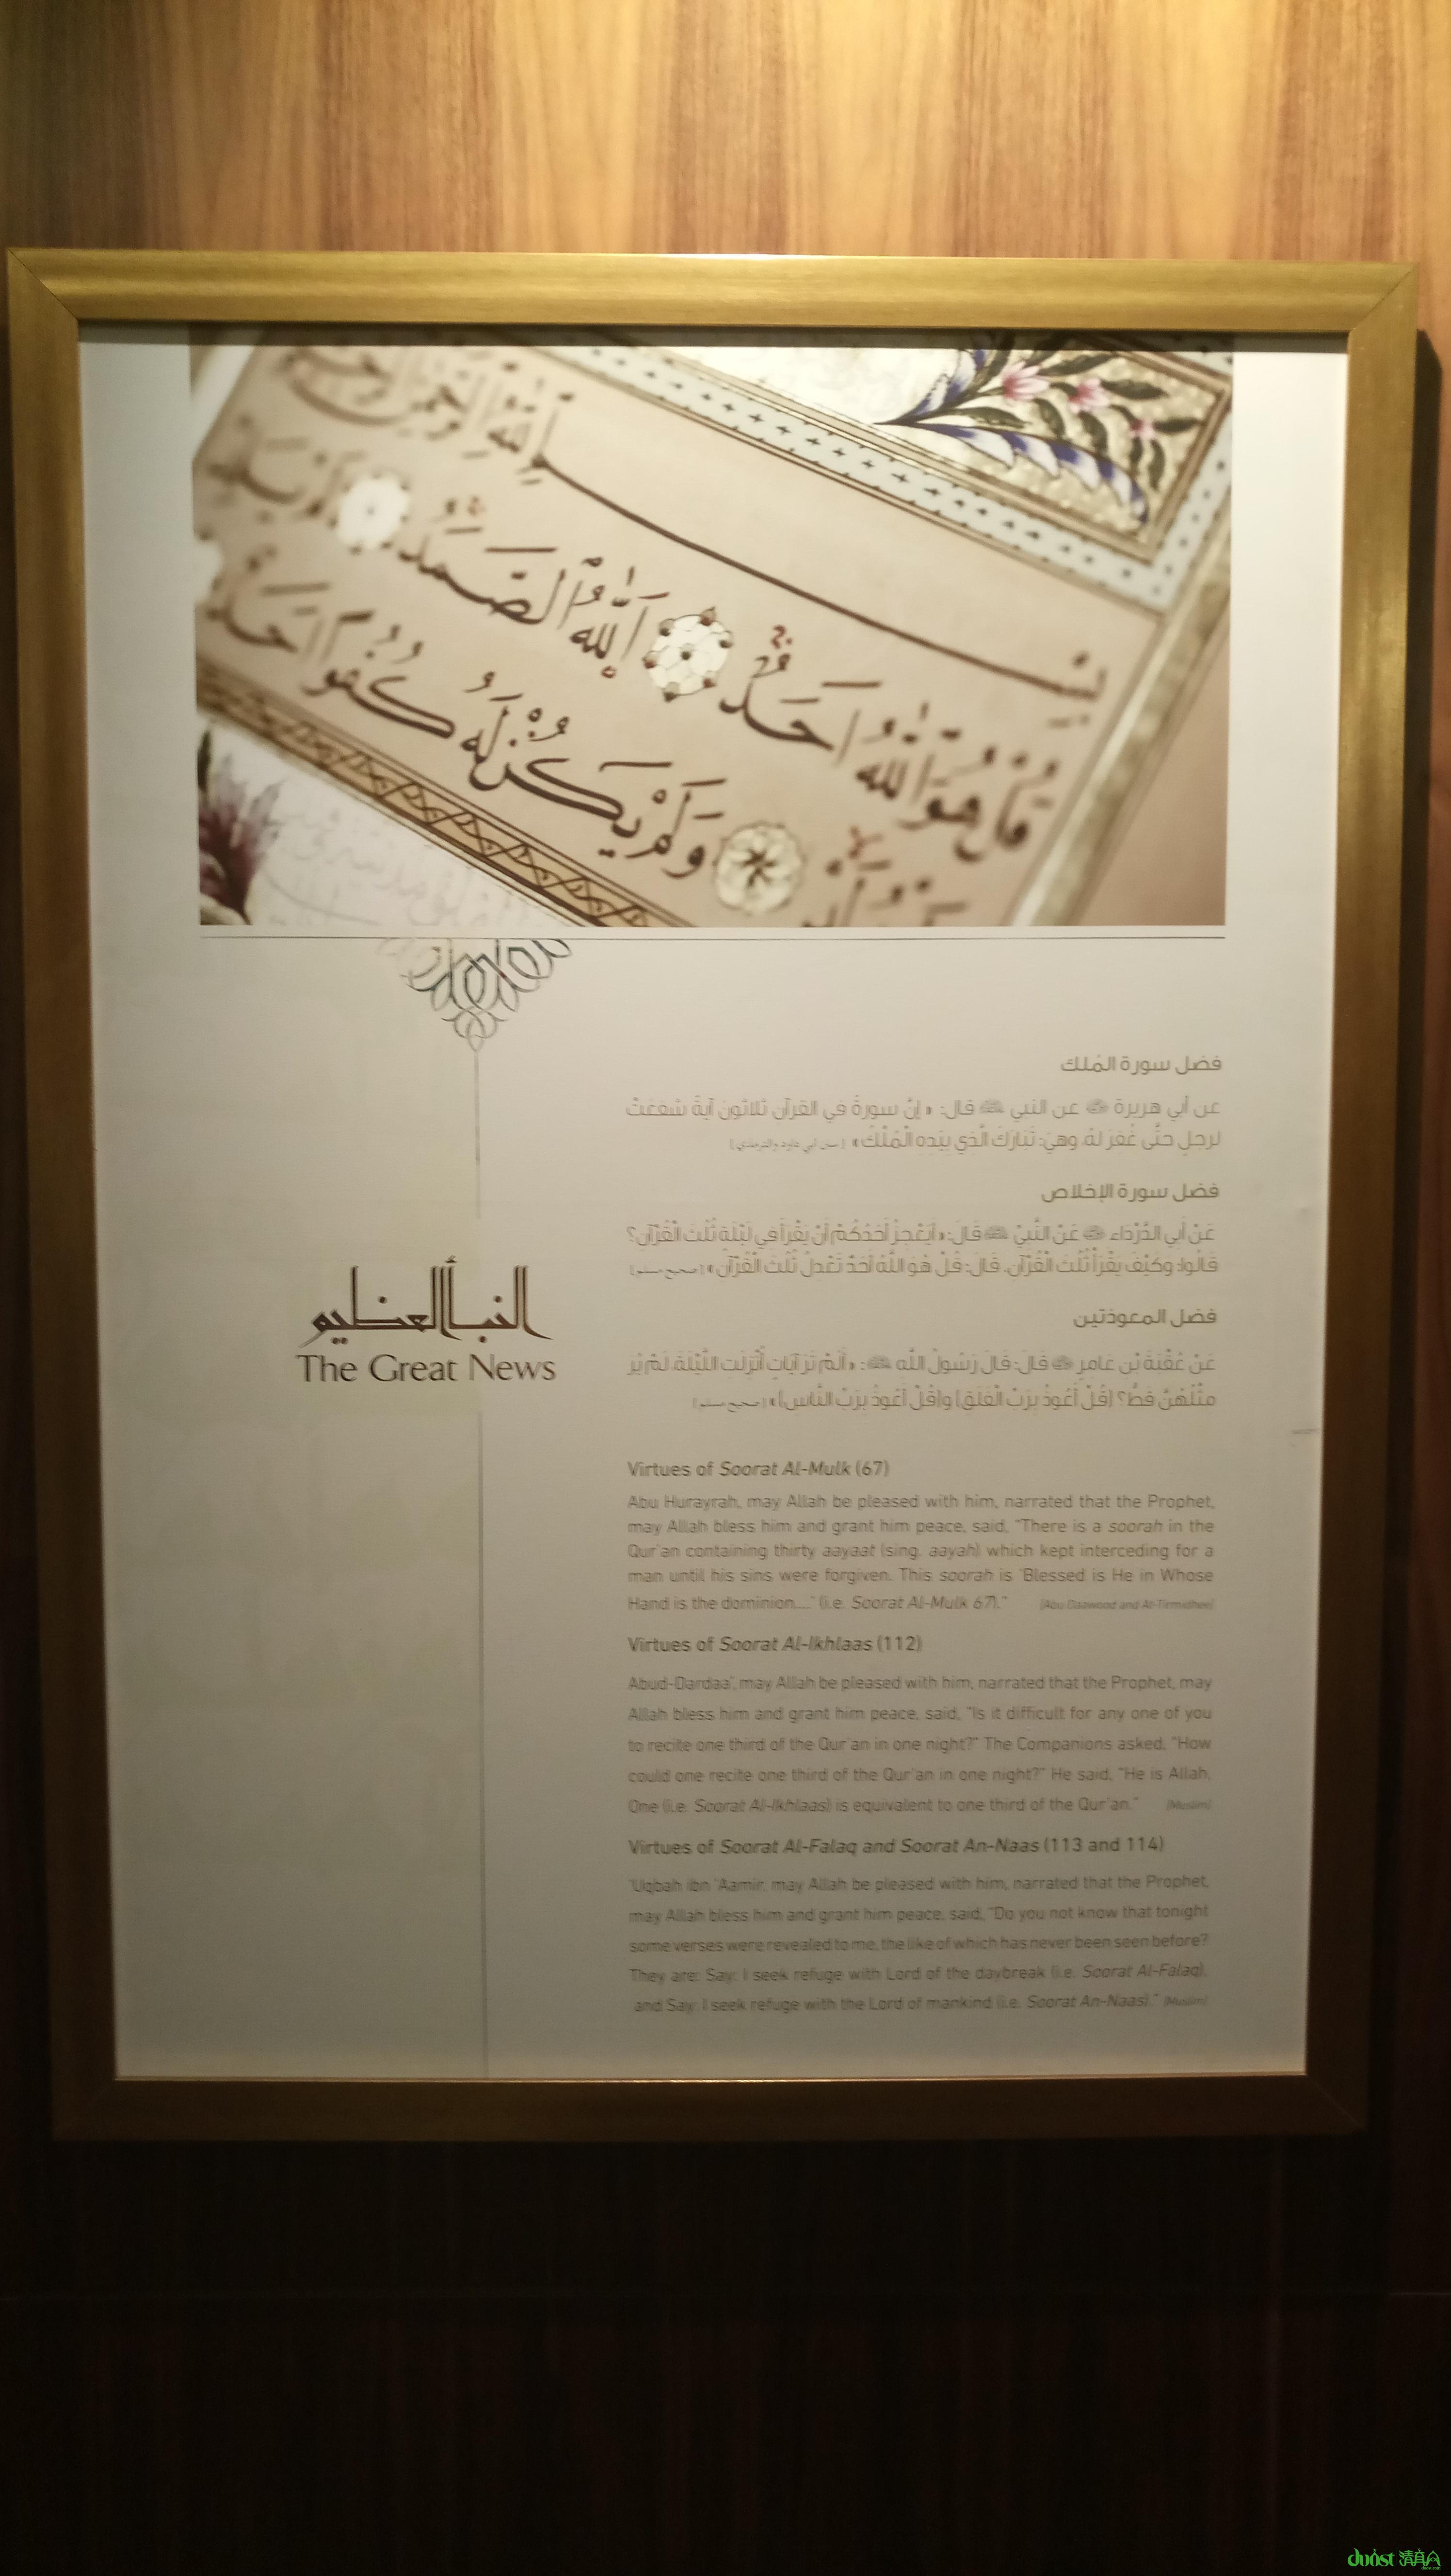 قُلْ هُوَ اللَّهُ أَحَدٌ اللَّهُ الصَّمَدُ
وَلَمْ يَكُن لَّهُ كُفُوًا أَحَدٌ
النبأ العظيم
The Great News
فضل سورة المُلك
عن أبي هريرة ﵁ عن النبي ﷺ قال: «إنَّ سورةً في القرآن ثلاثون آيةً شفعَتْ
لرجلٍ حتَّى غُفِرَ لهُ، وهيَ: تَبَارَكَ الَّذِي بِيَدِهِ الْمُلْكُ» (سنن أبي داود والترمذي)
فضل سورة الإخلاص
عَنْ أَبِي الدَّرْدَاءِ ﵁ عَنْ النَّبِيِّ ﷺ قَالَ: «أَيَعْجِزُ أَحَدُكُمْ أَنْ يَقْرَأَ فِي لَيْلَةٍ ثُلُثَ الْقُرْآنِ؟
قَالُوا: وَكَيْفَ يَقْرَأُ ثُلُثَ الْقُرْآنِ، قَالَ: قُلْ هُوَ اللَّهُ أَحَدٌ تَعْدِلُ ثُلُثَ الْقُرْآنِ» (صحيح مسلم)
فضل المعوذتين
عَنْ عُقْبَةَ بْنِ عَامِرٍ ﵁ قَالَ: قَالَ رَسُولُ اللَّهِ ﷺ: «أَلَمْ تَرَ آيَاتٍ أُنْزِلَتِ اللَّيْلَةَ، لَمْ يُرَ
مِثْلُهُنَّ قَطُّ؟ (قُلْ أَعُوذُ بِرَبِّ الْفَلَقِ) و(قُلْ أَعُوذُ بِرَبِّ النَّاسِ)» (صحيح مسلم)
Virtues of Soorat Al-Mulk (67)
Abu Hurayrah, may Allah be pleased with him, narrated that the Prophet,
may Allah bless him and grant him peace, said, "There is a soorah in the
Qur'an containing thirty aayaat (sing. aayah) which kept interceding for a
man until his sins were forgiven. This soorah is 'Blessed is He in Whose
Hand is the dominion....' (i.e. Soorat Al-Mulk 67)." (Abu Daawood and At-Tirmidhee)
Virtues of Soorat Al-Ikhlaas (112)
Abud-Dardaa', may Allah be pleased with him, narrated that the Prophet, may
Allah bless him and grant him peace, said, "Is it difficult for any one of you
to recite one third of the Qur'an in one night?" The Companions asked, "How
could one recite one third of the Qur'an in one night?" He said, "He is Allah,
One (i.e. Soorat Al-Ikhlaas) is equivalent to one third of the Qur'an." (Muslim)
Virtues of Soorat Al-Falaq and Soorat An-Naas (113 and 114)
'Uqbah ibn 'Aamir, may Allah be pleased with him, narrated that the Prophet,
may Allah bless him and grant him peace, said, "Do you not know that tonight
some verses were revealed to me, the like of which has never been seen before?
They are: Say: I seek refuge with Lord of the daybreak (i.e. Soorat Al-Falaq),
and Say: I seek refuge with the Lord of mankind (i.e. Soorat An-Naas)." (Muslim)
duost